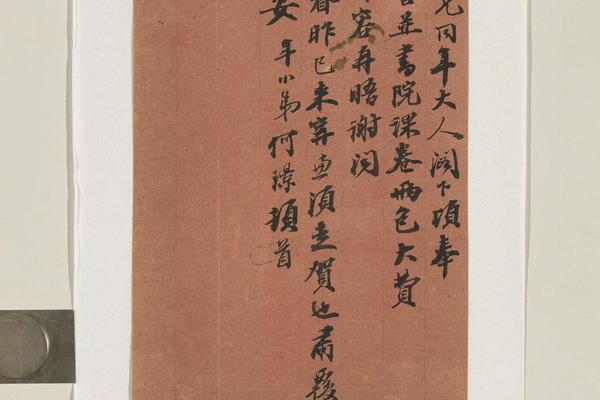 同年大人閣下頃奉
並書院課卷兩包大費
容再晤謝泐
昨已來寧亟須走賀也肅覆
安 年小弟何璟頓首